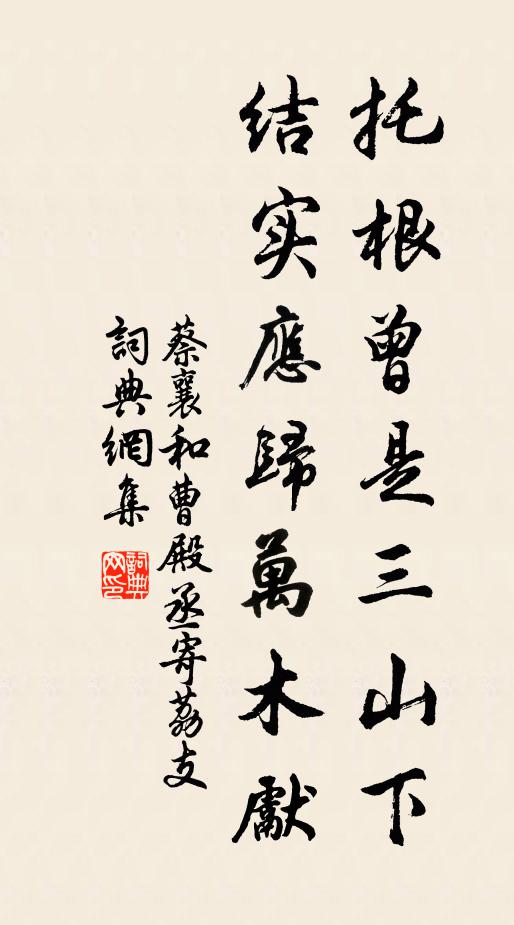 托根曾是三山下
结实應歸萬木獻
蔡襄和曹殿丞寄荔支
詞典網集
詞典
网印